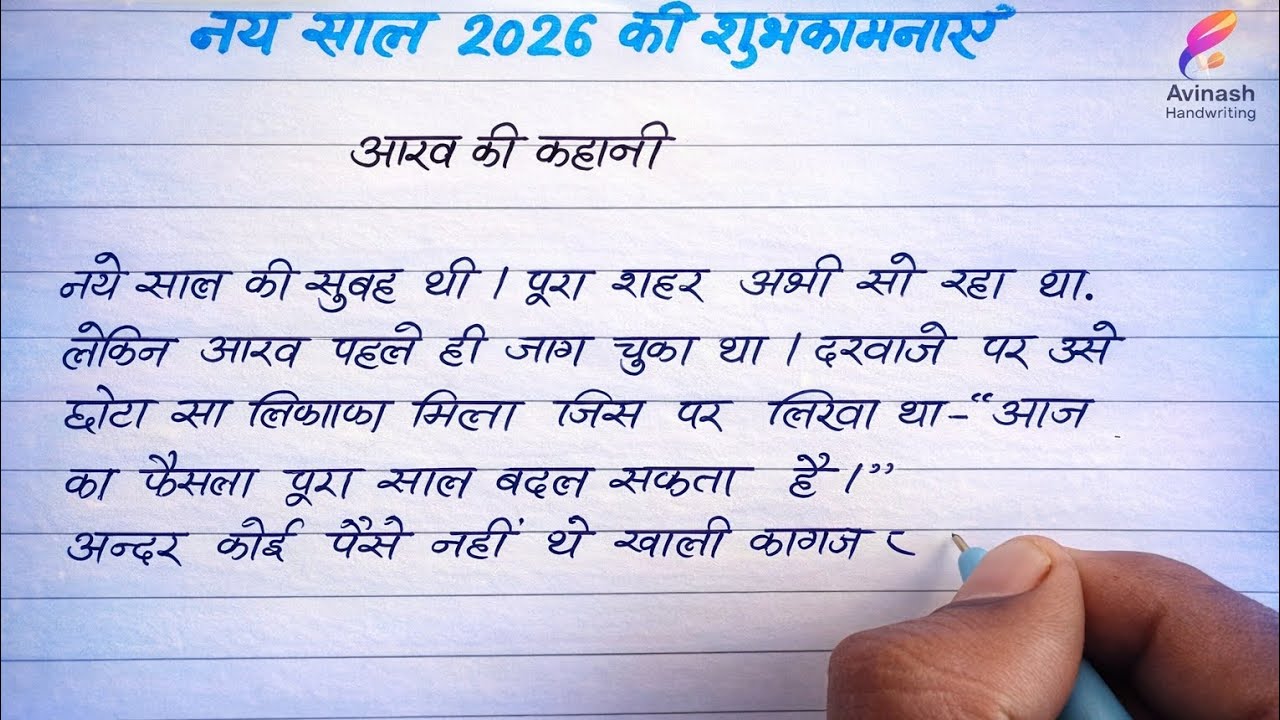 नय साल 2026 की शुभकामनाएं
Avinash
Handwriting
आरव की कहानी
नये साल की सुबह थी । पूरा शहर अभी सो रहा था.
लेकिन आरव पहले ही जाग चुका था । दरवाजे पर उसे
छोटा सा लिफाफा मिला जिस पर लिखा था-“आज
का फैसला पूरा साल बदल सकता है ।”
अन्दर कोई पैसे नहीं थे खाली कागज